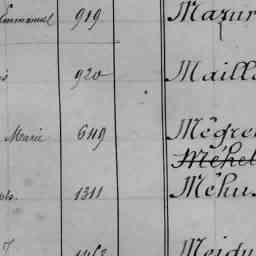 Emmanuel 919 Mazur
920 Maill
Marie 649 Mégre
Méhel
1311 Méhu